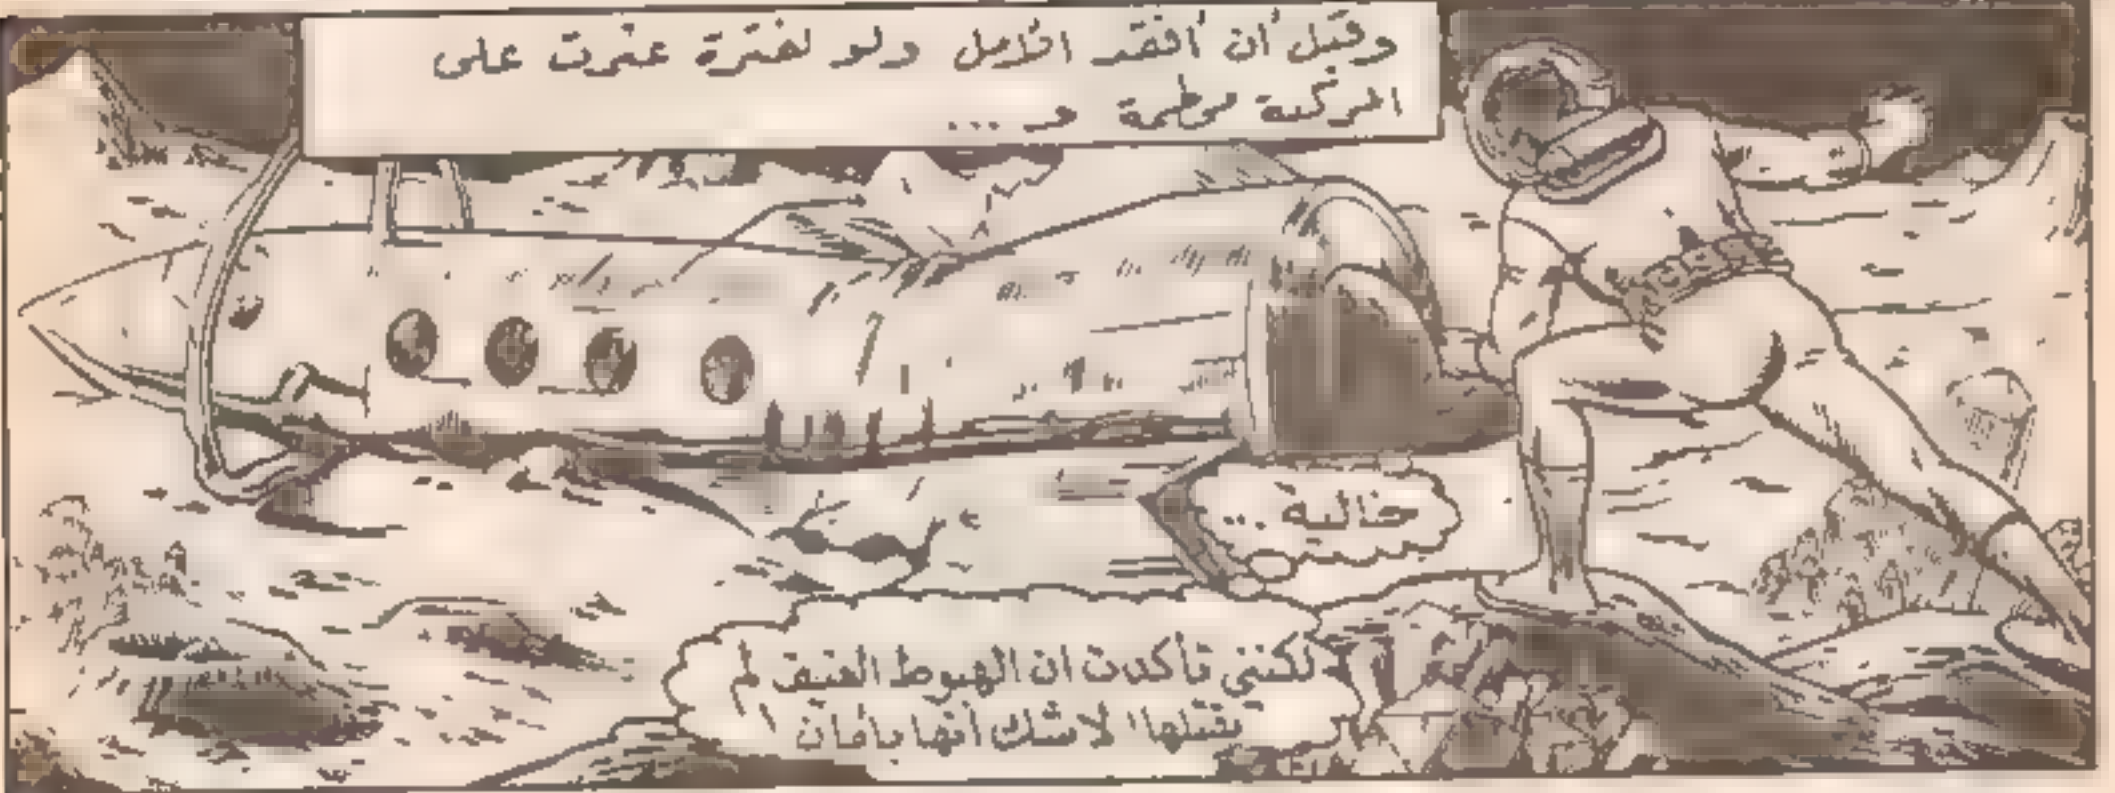 وقبل أن أفقد الأمل ولو لفترة عثرت على
المركبة محطمة و ...
خالية ...
لكنني تأكدت ان الهبوط العنيف لم
يقتلها ! لا شك أنها بأمان !